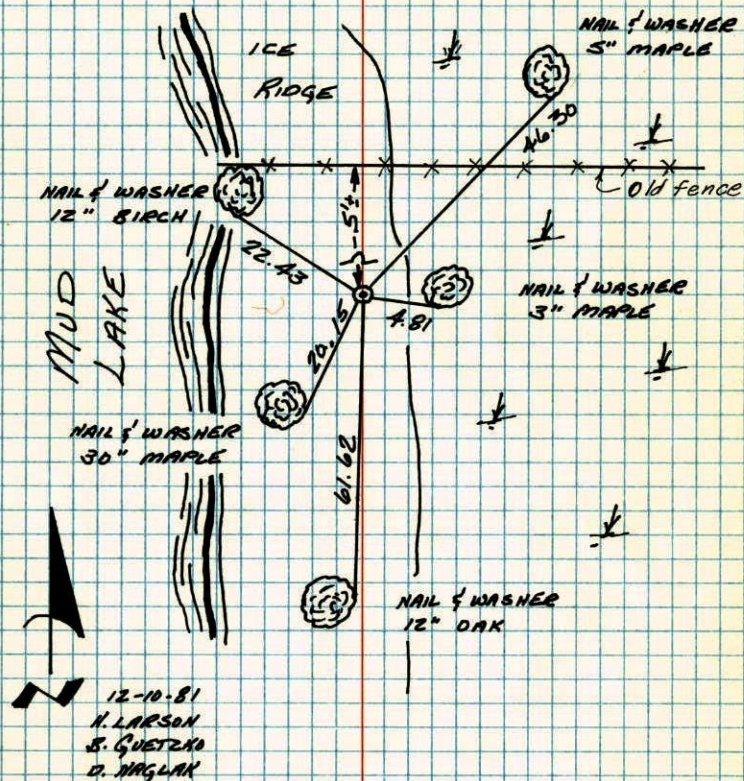 NAIL & WASHER
5" MAPLE
ICE
RIDGE
46.30
Old fence
NAIL & WASHER
12" BIRCH
5'±
22.43
NAIL & WASHER
3" MAPLE
4.81
MUD
LAKE
20.15
NAIL & WASHER
30" MAPLE
61.62
NAIL & WASHER
12" OAK
N
12-10-81
H. LARSON
B. GUETZKO
D. NAGLAK